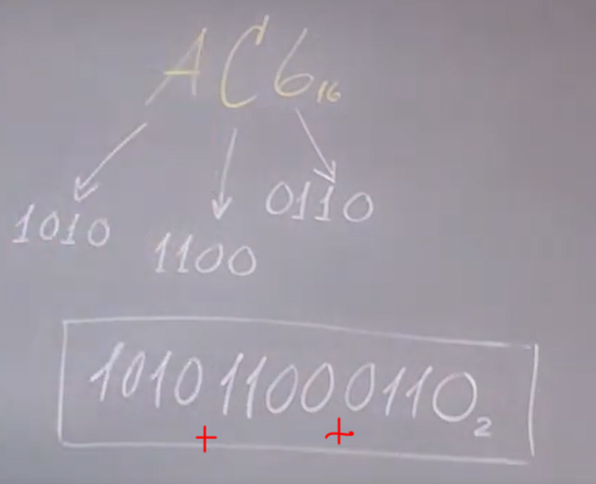 AC6₁₆
1010 1100 0110
101011000110₂
+ +